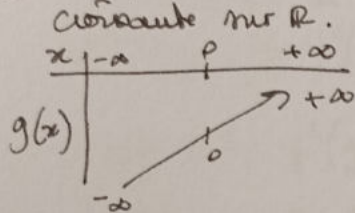 croissante sur ℝ.
x -∞ ρ +∞
+∞
g(x) 0
-∞